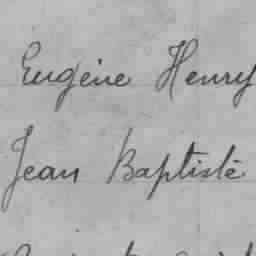 Eugène Henry
Jean Baptiste